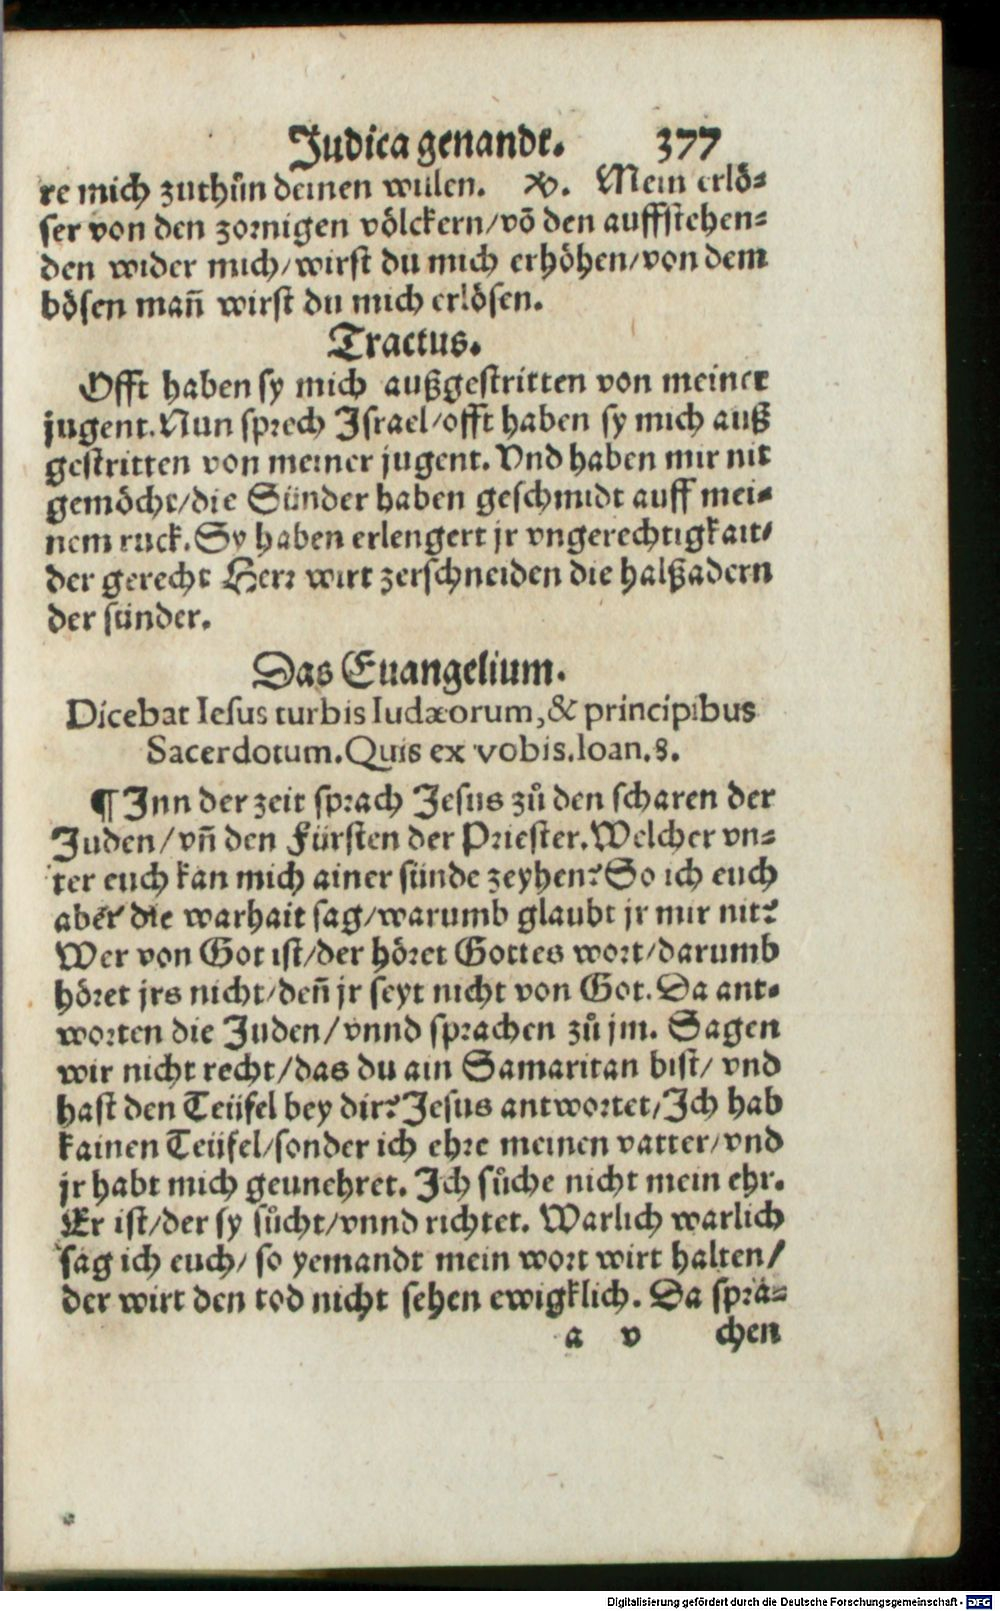 Judica genandt. 377
re mich zuthůn deinen willen. ℣. Mein erlö-
ser von den zornigen völckern/võ den auffstehen-
den wider mich/wirst du mich erhöhen/von dem
bösen mañ wirst du mich erlösen.
Tractus.
Offt haben sy mich außgestritten von meiner
jugent. Nun sprech Israel/offt haben sy mich auß
gestritten von meiner jugent. Vnd haben mir nit
gemöcht/die Sünder haben geschmidt auff mei-
nem ruck. Sy haben erlengert jr vngerechtigkait/
der gerecht Herr wirt zerschneiden die halßadern
der sünder.
Das Euangelium.
Dicebat Iesus turbis Iudæorum,& principibus
Sacerdotum. Quis ex vobis. Ioan. 8.
¶ Inn der zeit sprach Jesus zů den scharen der
Juden/vñ den Fürsten der Priester. Welcher vn-
ter euch kan mich ainer sünde zeyhen? So ich euch
aber die warhait sag/warumb glaubt jr mir nit?
Wer von Got ist/der höret Gottes wort/darumb
höret jrs nicht/deñ jr seyt nicht von Got. Da ant-
worten die Juden/vnnd sprachen zů jm. Sagen
wir nicht recht/das du ain Samaritan bist/ vnd
hast den Teüfel bey dir? Jesus antwortet/Ich hab
kainen Teüfel/sonder ich ehre meinen vatter/vnd
jr habt mich geunehret. Ich sůche nicht mein ehr.
Er ist/der sy sůcht/vnnd richtet. Warlich warlich
sag ich euch/ so yemandt mein wort wirt halten/
der wirt den tod nicht sehen ewigklich. Da spra-
a v chen
Digitalisierung gefördert durch die Deutsche Forschungsgemeinschaft - DFG